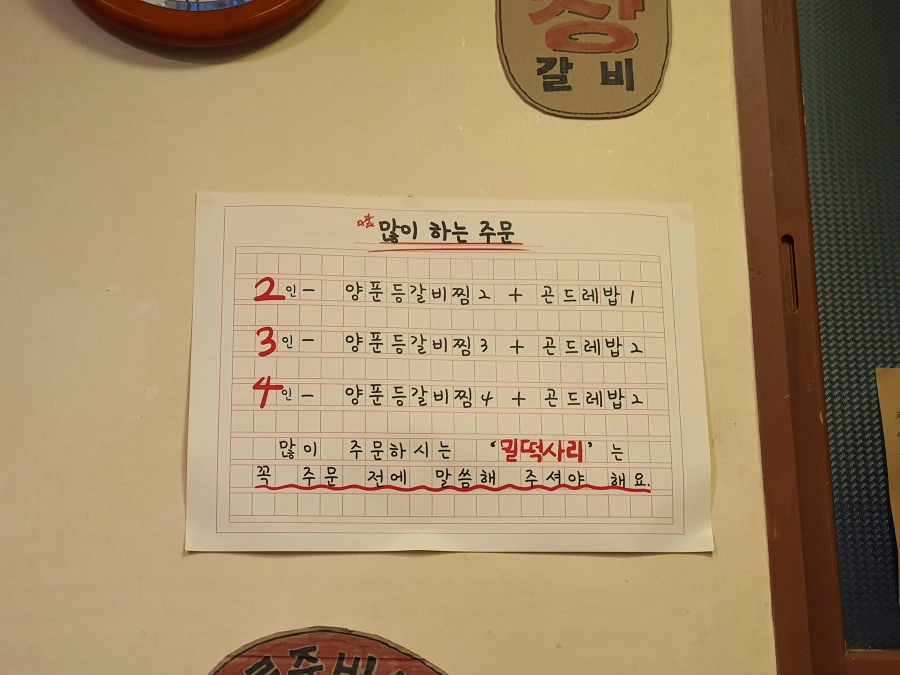 장
갈비
많이 하는 주문
2인 - 양푼등갈비찜2 + 곤드레밥1
3인 - 양푼등갈비찜3 + 곤드레밥2
4인 - 양푼등갈비찜4 + 곤드레밥2
많이 주문하시는 '밀떡사리' 는
꼭 주문 전에 말씀해 주셔야 해요.